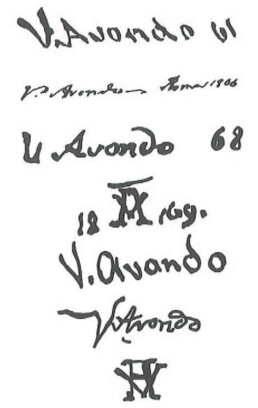 V. Avondo 61
V. Avondo Roma 1806
V Avondo 68
18 AV 69.
V. Avando
V. Avondo
AV